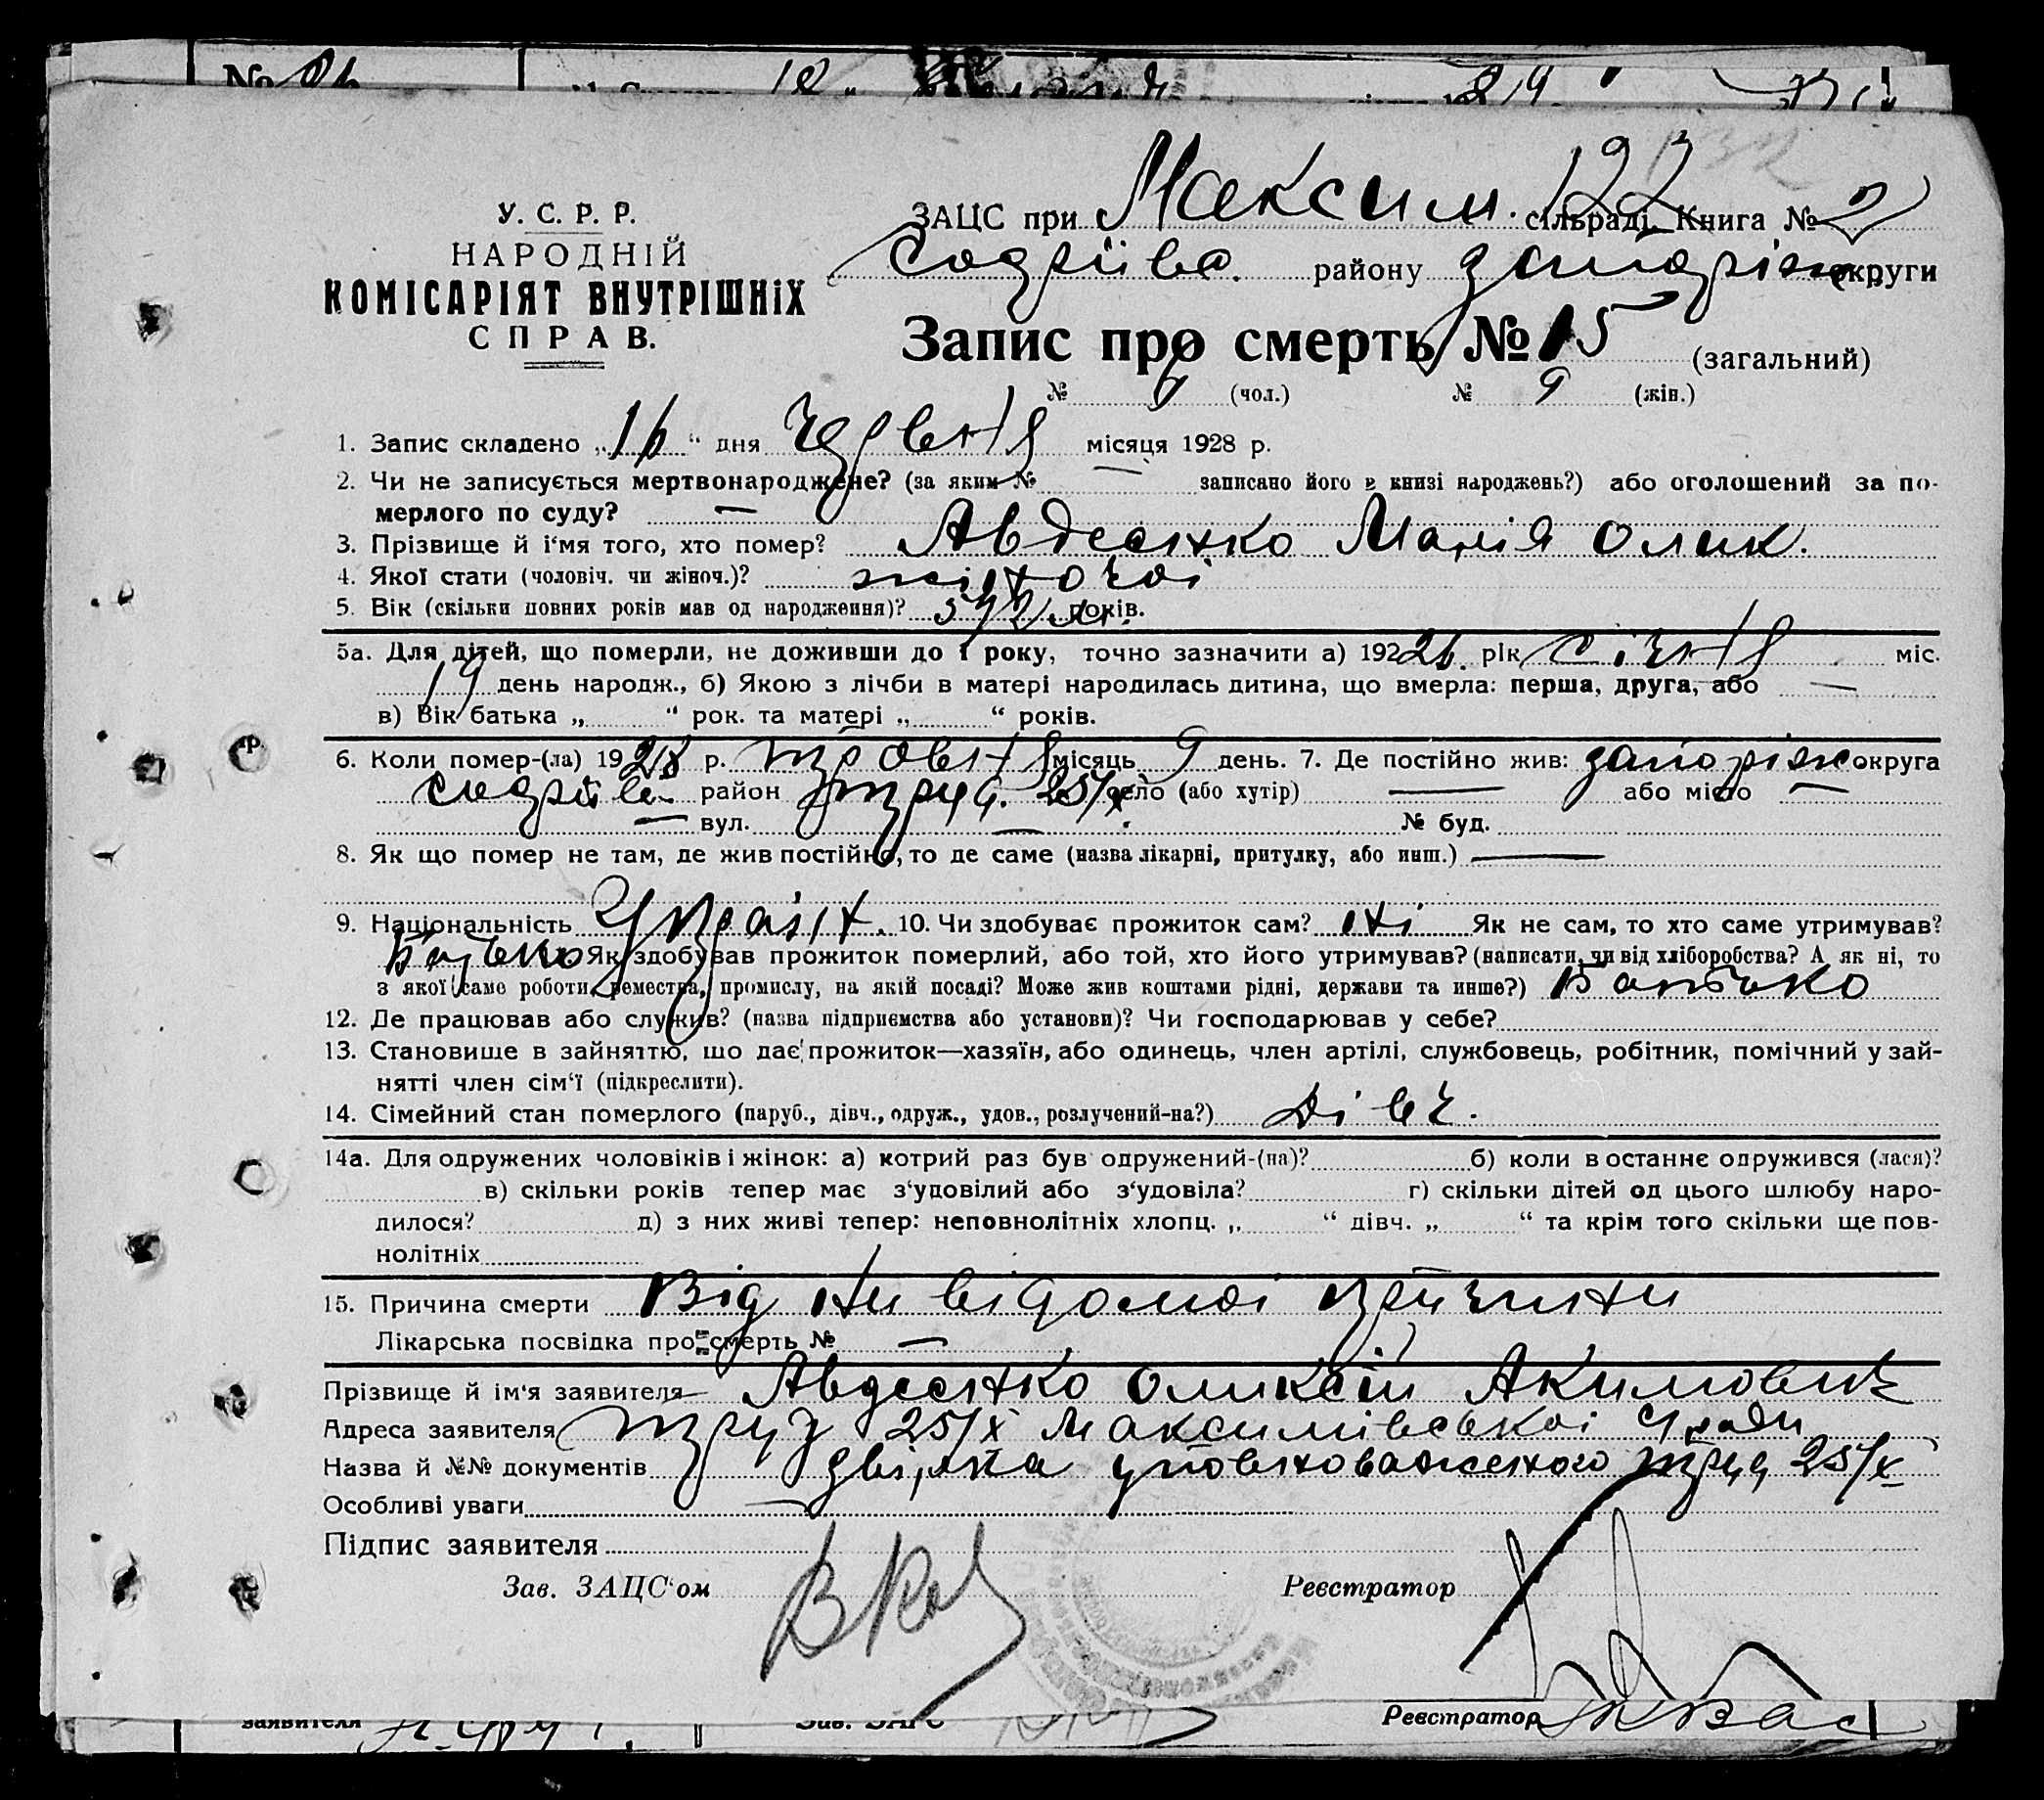 У. С. Р. Р.
НАРОДНІЙ
КОМІСАРІЯТ ВНУТРІШНІХ
СПРАВ.
ЗАЦС при Максим. сільраді, Книга № 2
району округи
Запис про смерть № 15 (загальний)
№ 6 (чол.) № 9 (жін.)
1. Запис складено „16“ дня червня місяця 1928 р.
2. Чи не записується мертвонароджене? (за яким № — записано його в книзі народжень?) або оголошений за по-
мерлого по суду? —
3. Прізвище й і‘мя того, хто помер? Авдеєнко Марія Олик.
4. Якої статі (чоловіч. чи жіноч.)? жіночоі
5. Вік (скільки повних років мав од народження)? років.
5а. Для дітей, що померли, не доживши до 1 року, точно зазначити а) 192 26. рік січня міс.
19 день народж., б) Якою з лічби в матері народилась дитина, що вмерла: перша, друга, або —
в) Вік батька „ “ рок. та матері „ “ років.
6. Коли помер-(ла) 1928 р. травня місяць 9 день. 7. Де постійно жив: запоріж округа
район 25/х село (або хутір) — або місто —
— вул. — № буд.
8. Як що помер не там, де жив постійно, то де саме (назва лікарні, притулку, або инш.) —
9. Національність Україн. 10. Чи здобуває прожиток сам? ні Як не сам, то хто саме утримував?
Батько Як здобував прожиток померлий, або той, хто його утримував? (написати, чи від хліборобства? А як ні, то
з якої саме роботи, ремества, промислу, на якій посаді? Може жив коштами рідні, держави та инше?) Батько
12. Де працював або служив? (назва підприємства або установи)? Чи господарював у себе?
13. Становище в зайняттю, що дає прожиток—хазяїн, або одинець, член артілі, службовець, робітник, помічний у зай-
нятті член сім‘ї (підкреслити).
14. Сімейний стан померлого (паруб., дівч., одруж., удов., розлучений-на?) Дівч.
14а. Для одружених чоловіків і жінок: а) котрий раз був одружений-(на)? б) коли в останнє одружився (лася)?
в) скільки років тепер має з‘удовілий або з‘удовіла? г) скільки дітей од цього шлюбу наро-
дилося? д) з них живі тепер: неповнолітніх хлопц. „ “ дівч. „ “ та крім того скільки ще пов-
нолітніх
15. Причина смерти Від нивідомоі причини
Лікарська посвідка про смерть № —
Прізвище й ім‘я заявителя Авдеєнко Оликсій Акимович
Адреса заявителя 25/х Максимівськоі
Назва й №№ документів уповноваженого 25/х
Особливі уваги —
Підпис заявителя
Зав. ЗАЦС‘ом Реєстратор
Реєстратор